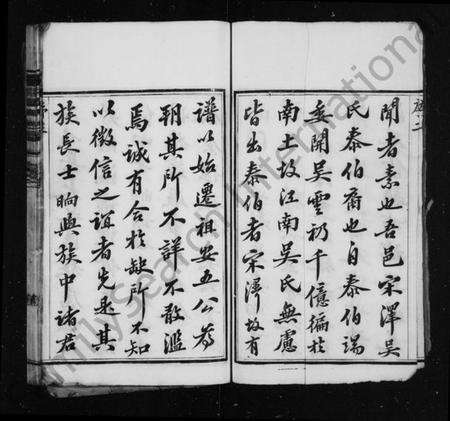 聞者素也吾邑宋澤吳
氏泰伯裔也自泰伯端
委開吳雲礽千億徧於
南土故江南吳氏無慮
皆出泰伯者宋澤故有
譜以始遷祖安五公為
朔其所不詳不敢濫
焉誠有合於缺所不知
以徵信之誼者先是其
族長士晌與族中諸君
FamilySearch International